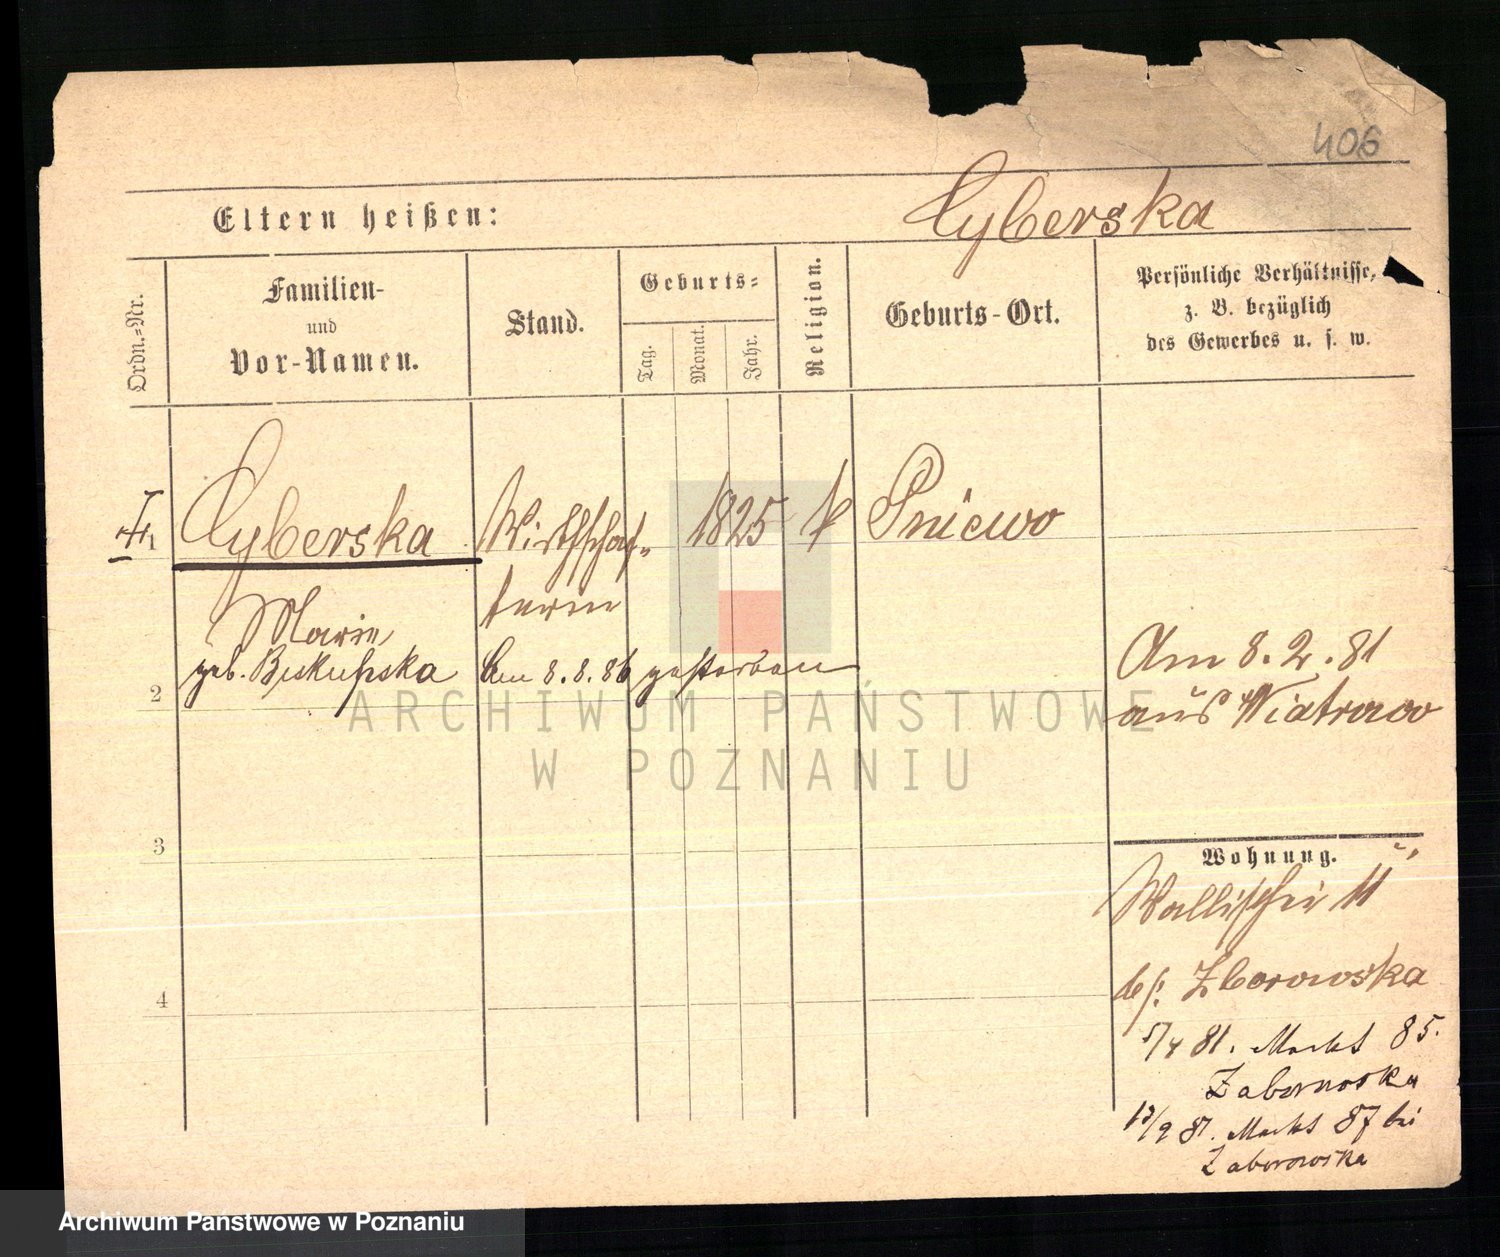 406
Eltern heißen:
Cyberska
Ordn.-Nr.
Familien-
und
Vor-Namen.
Stand.
Geburts-
Tag.
Monat.
Jahr.
Religion.
Geburts-Ort.
Persönliche Verhältnisse,
z. B. bezüglich
des Gewerbes u. s. w.
1
Cyberska
Wirthschaf-
1825
k
Pniewo
terin
Marie
geb. Biskupska
Am 8. 8. 86 gestorben
Am 8. 2. 81
aus Wiatrowo
2
3
4
Wohnung.
Wallischei 11
bei Zborowska
5/4 81. Markt 85.
Zaborowska
/9 81. Markt 87 bei
Zaborowska
ARCHIWUM PAŃSTWOWE
W POZNANIU
Archiwum Państwowe w Poznaniu